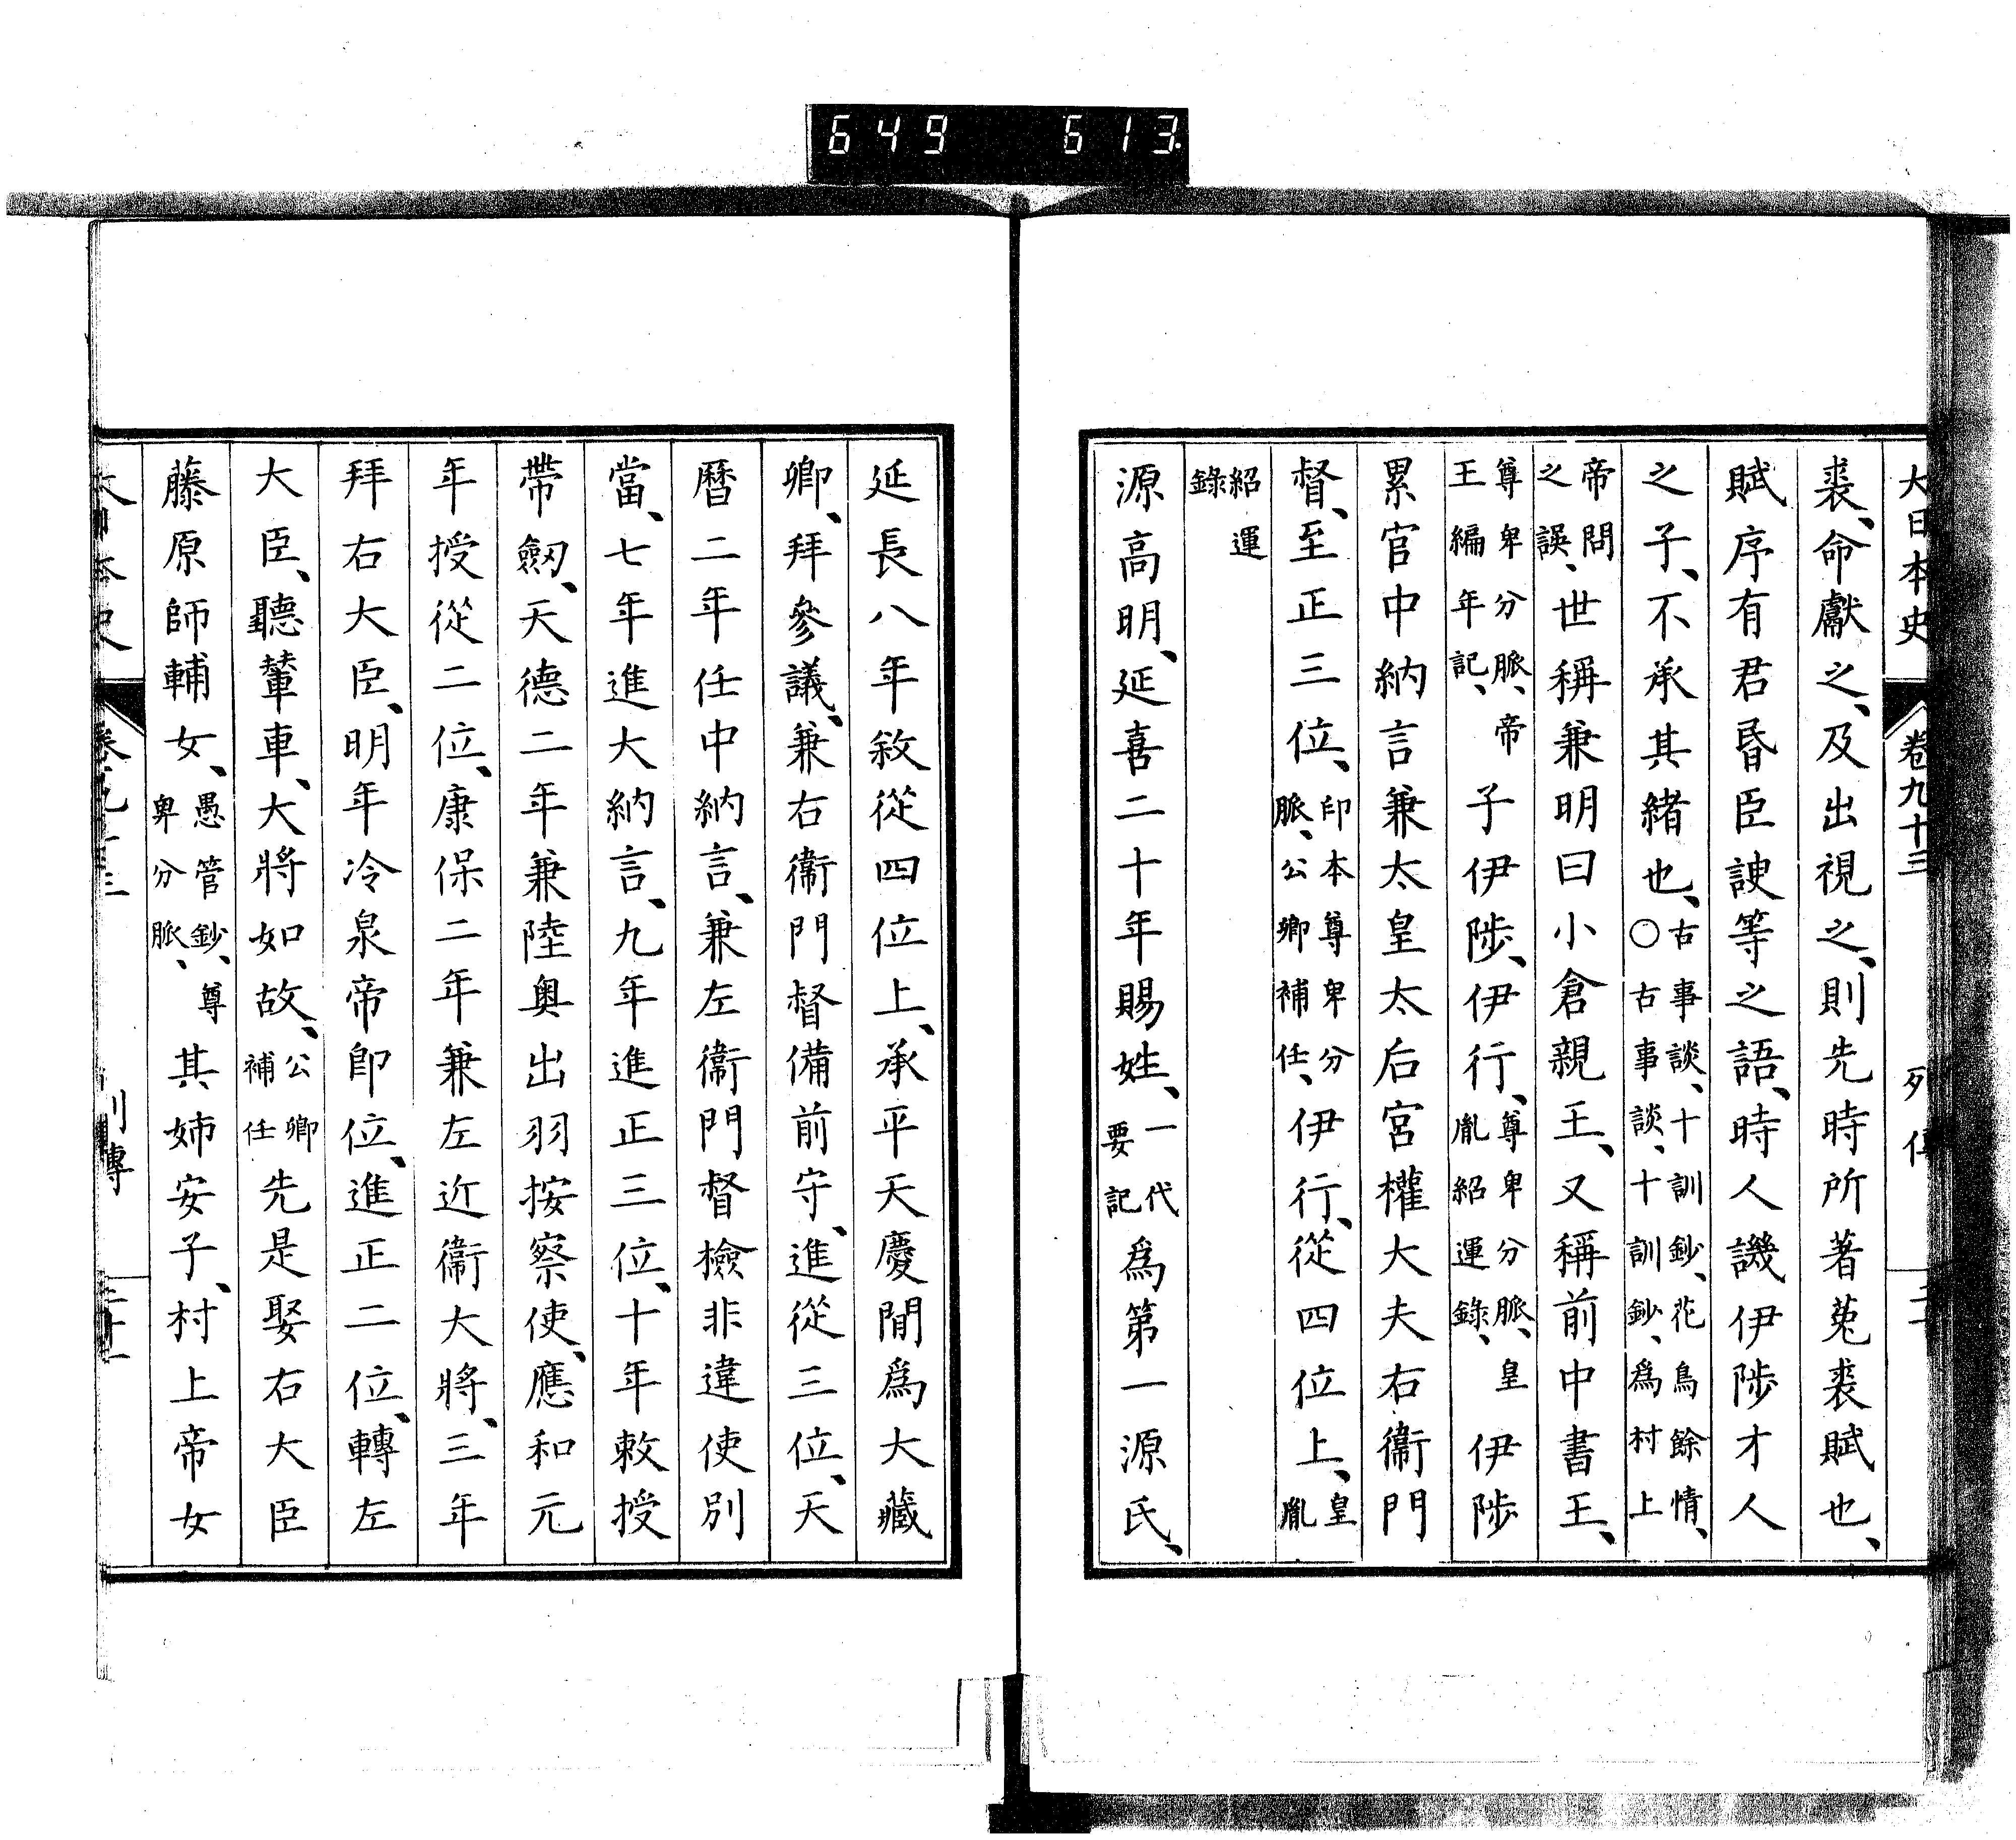 649 613
大日本史 卷九十三 列傳
裘、命獻之、及出視之、則先時所著菟裘賦也、
賦序有君昏臣諛等之語、時人譏伊陟才人
之子、不承其緒也、古事談、十訓鈔、花鳥餘情、〇古事談、十訓鈔、爲村上
帝問之誤、世稱兼明曰小倉親王、又稱前中書王、
尊卑分脈、帝王編年記、子伊陟、伊行、尊卑分脈、皇胤紹運錄、伊陟
累官中納言兼太皇太后宮權大夫右衞門
督、至正三位、印本尊卑分脈、公卿補任、伊行、從四位上、皇胤
紹運錄
源高明、延喜二十年賜姓、一代要記爲第一源氏、
延長八年敘從四位上、承平天慶間爲大藏
卿、拜參議、兼右衞門督備前守、進從三位、天
曆二年任中納言、兼左衞門督檢非違使別
當、七年進大納言、九年進正三位、十年敕授
帶劔、天德二年兼陸奧出羽按察使、應和元
年授從二位、康保二年兼左近衞大將、三年
拜右大臣、明年冷泉帝卽位、進正二位、轉左
大臣、聽輦車、大將如故、公卿補任先是娶右大臣
藤原師輔女、愚管鈔、尊卑分脈、其姉安子、村上帝女